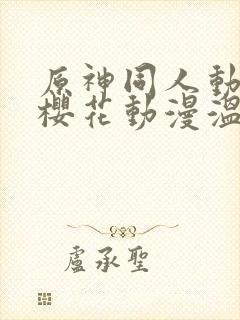 原神同人動
櫻花動漫溫
盧承聖